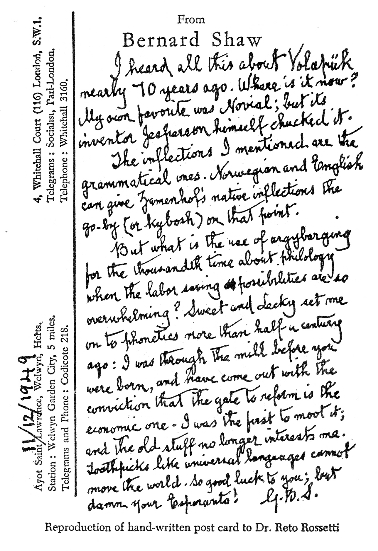 From
Bernard Shaw
4, Whitehall Court (110) London, S.W.1.
Telegrams: Socialist, Parl-London.
Telephone: Whitehall 3160.
11/12/1949
Ayot Saint Lawrence, Welwyn, Herts.
Station: Welwyn Garden City, 5 miles.
Telegrams and Phone: Codicote 218.
I heard all this about Volapük
nearly 70 years ago. Where is it now?
My own favorite was Novial; but its
inventor Jesperson himself chucked it.
The inflections I mentioned are the
grammatical ones. Norwegian and English
can give Zamenhof's native inflections the
go-by (or kybosh) on that point.
But what is the use of argybarging
for the thousandth time about philology
when the labor saving possibilities are so
overwhelming? Sweet and Lecky set me
on to phonetics more than half a century
ago: I was through the mill before you
were born, and have come out with the
conviction that the gate to reform is the
economic one - I was the first to moot it;
and the old stuff no longer interests me.
Toothpicks like universal languages cannot
move the world. So good luck to you; but
damn your Esperanto!
G.B.S.
Reproduction of hand-written post card to Dr. Reto Rossetti